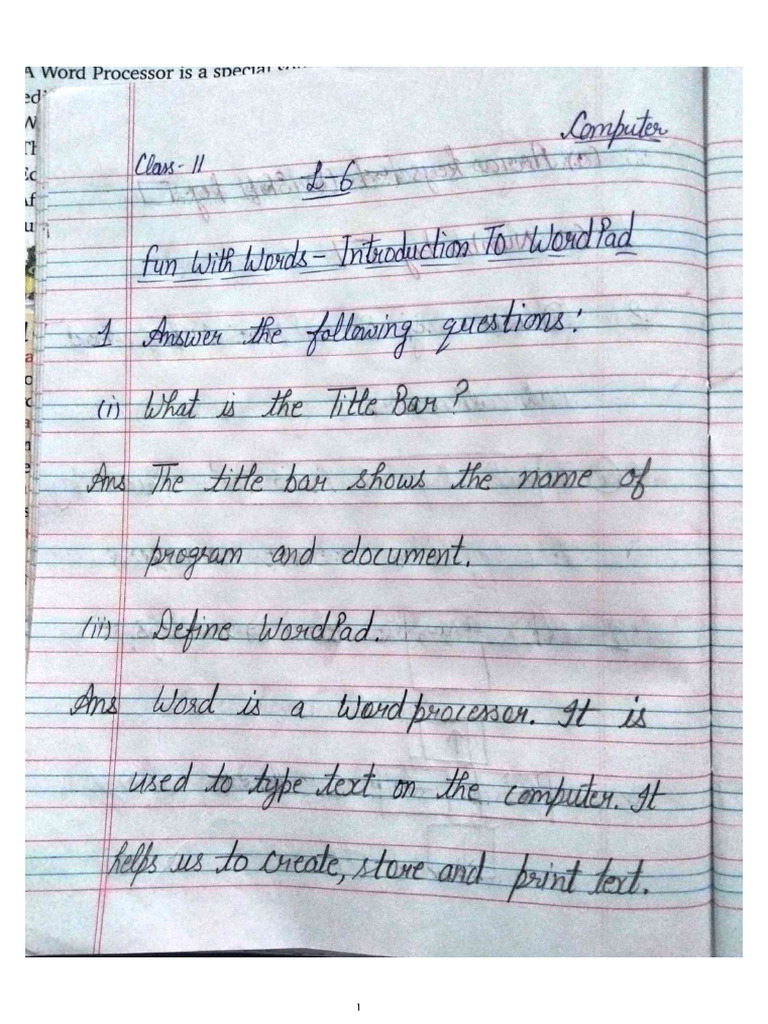 A Word Processor is a special
Computer
Class - II
L-6
Fun With Words - Introduction To WordPad
1 Answer the following questions:
(i) What is the Title Bar?
Ans The title bar shows the name of
program and document.
(ii) Define WordPad.
Ans Word is a Wordprocessor. It is
used to type text on the computer. It
helps us to create, store and print text.
1